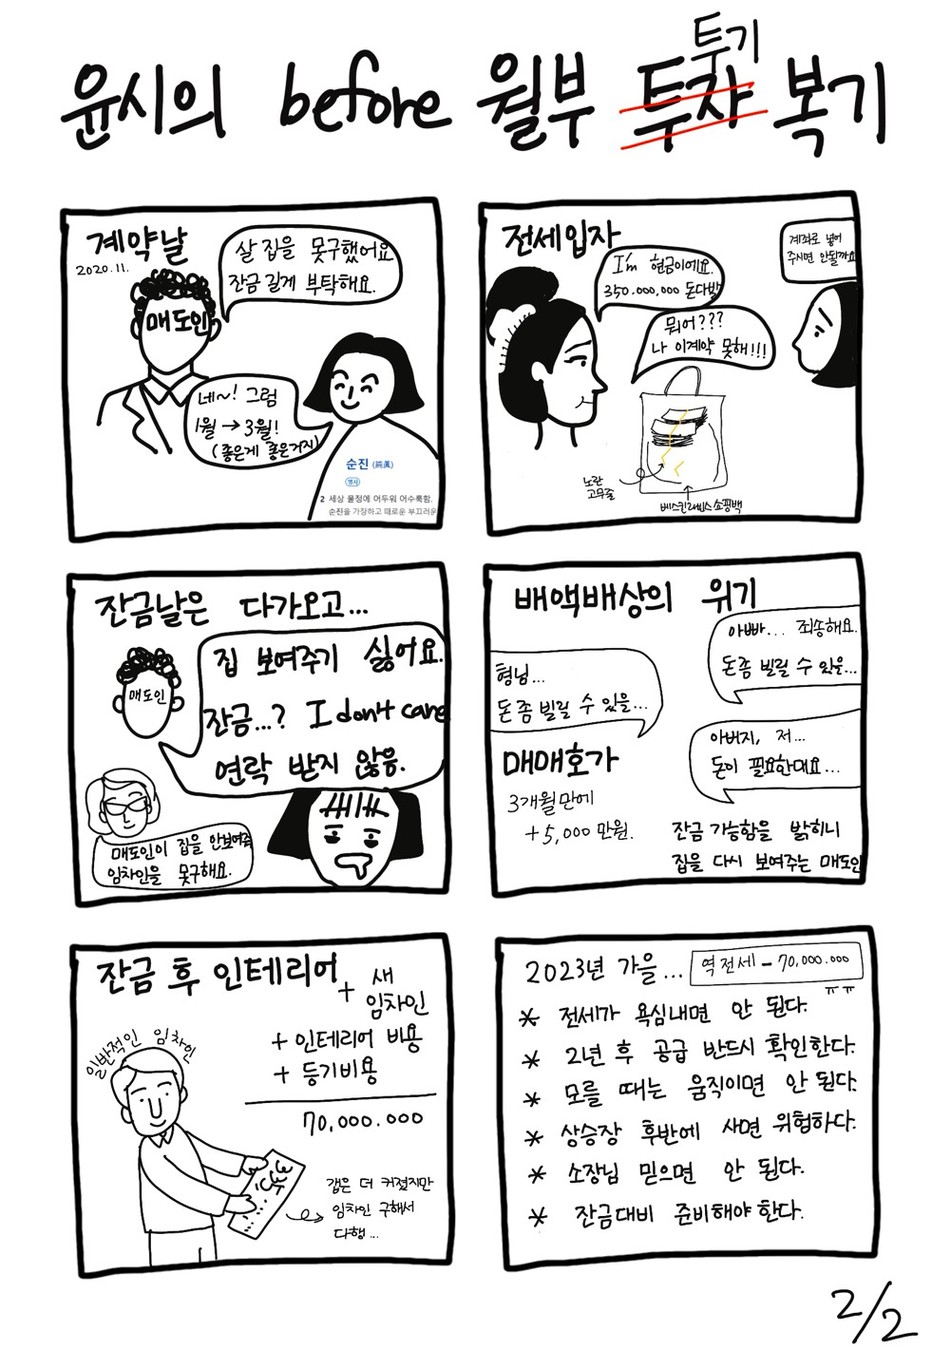 윤시의 before 월부 투자 복기
투기
계약날
2020.11.
살 집을 못구했어요
잔금 길게 부탁해요.
매도인
네~! 그럼
1월 → 3월!
(좋은게 좋은거지)
순진 (純眞)
명사
2 세상 물정에 어두워 어수룩함.
순진을 가장하고 때로운 부끄러운
전세입자
I'm 현금이에요.
350,000,000 돈다발
계좌로 넣어
주시면 안될까요
뭐어???
나 이계약 못해!!!
노란
고무줄
베스킨라빈스 쇼핑백
잔금날은 다가오고...
매도인
집 보여주기 싫어요.
잔금...? I don't care
연락 받지 않음.
매도인이 집을 안보여줘
임차인을 못구해요.
배액배상의 위기
아빠... 죄송해요.
돈 좀 빌릴 수 있을...
형님...
돈 좀 빌릴 수 있을...
아버지, 저...
돈이 필요한데요...
매매호가
3개월만에
+5,000 만원.
잔금 가능함을 밝히니
집을 다시 보여주는 매도인
잔금 후 인테리어
+ 새
임차인
+ 인테리어 비용
+ 등기비용
70,000,000
일반적인 임차인
3억5...
갭은 더 커졌지만
임차인 구해서
다행...
2023년 가을... 역전세 - 70,000,000
ㅠㅠ
* 전세가 욕심내면 안 된다.
* 2년 후 공급 반드시 확인한다.
* 모를 때는 움직이면 안 된다.
* 상승장 후반에 사면 위험하다.
* 소장님 믿으면 안 된다.
* 잔금대비 준비해야 한다.
2/2